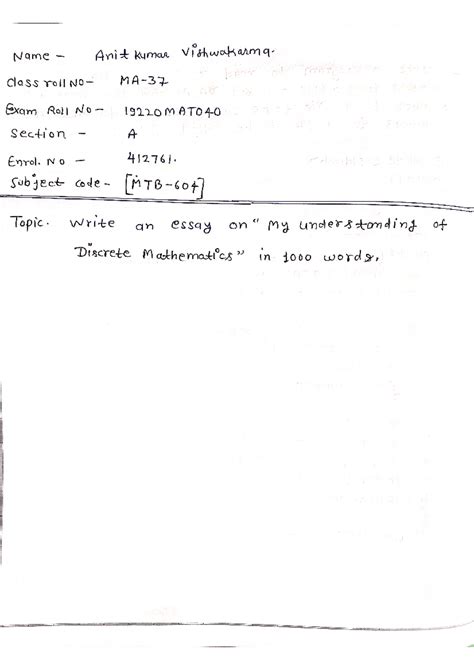 Name - Anit Kumar Vishwakarma.
Class roll NO- MA-37
Exam Roll No - 19220MAT040
Section - A
Enrol. No - 412761.
Subject code - [MTB-604]
Topic. Write an essay on "My understanding of
Discrete Mathematics" in 1000 words.